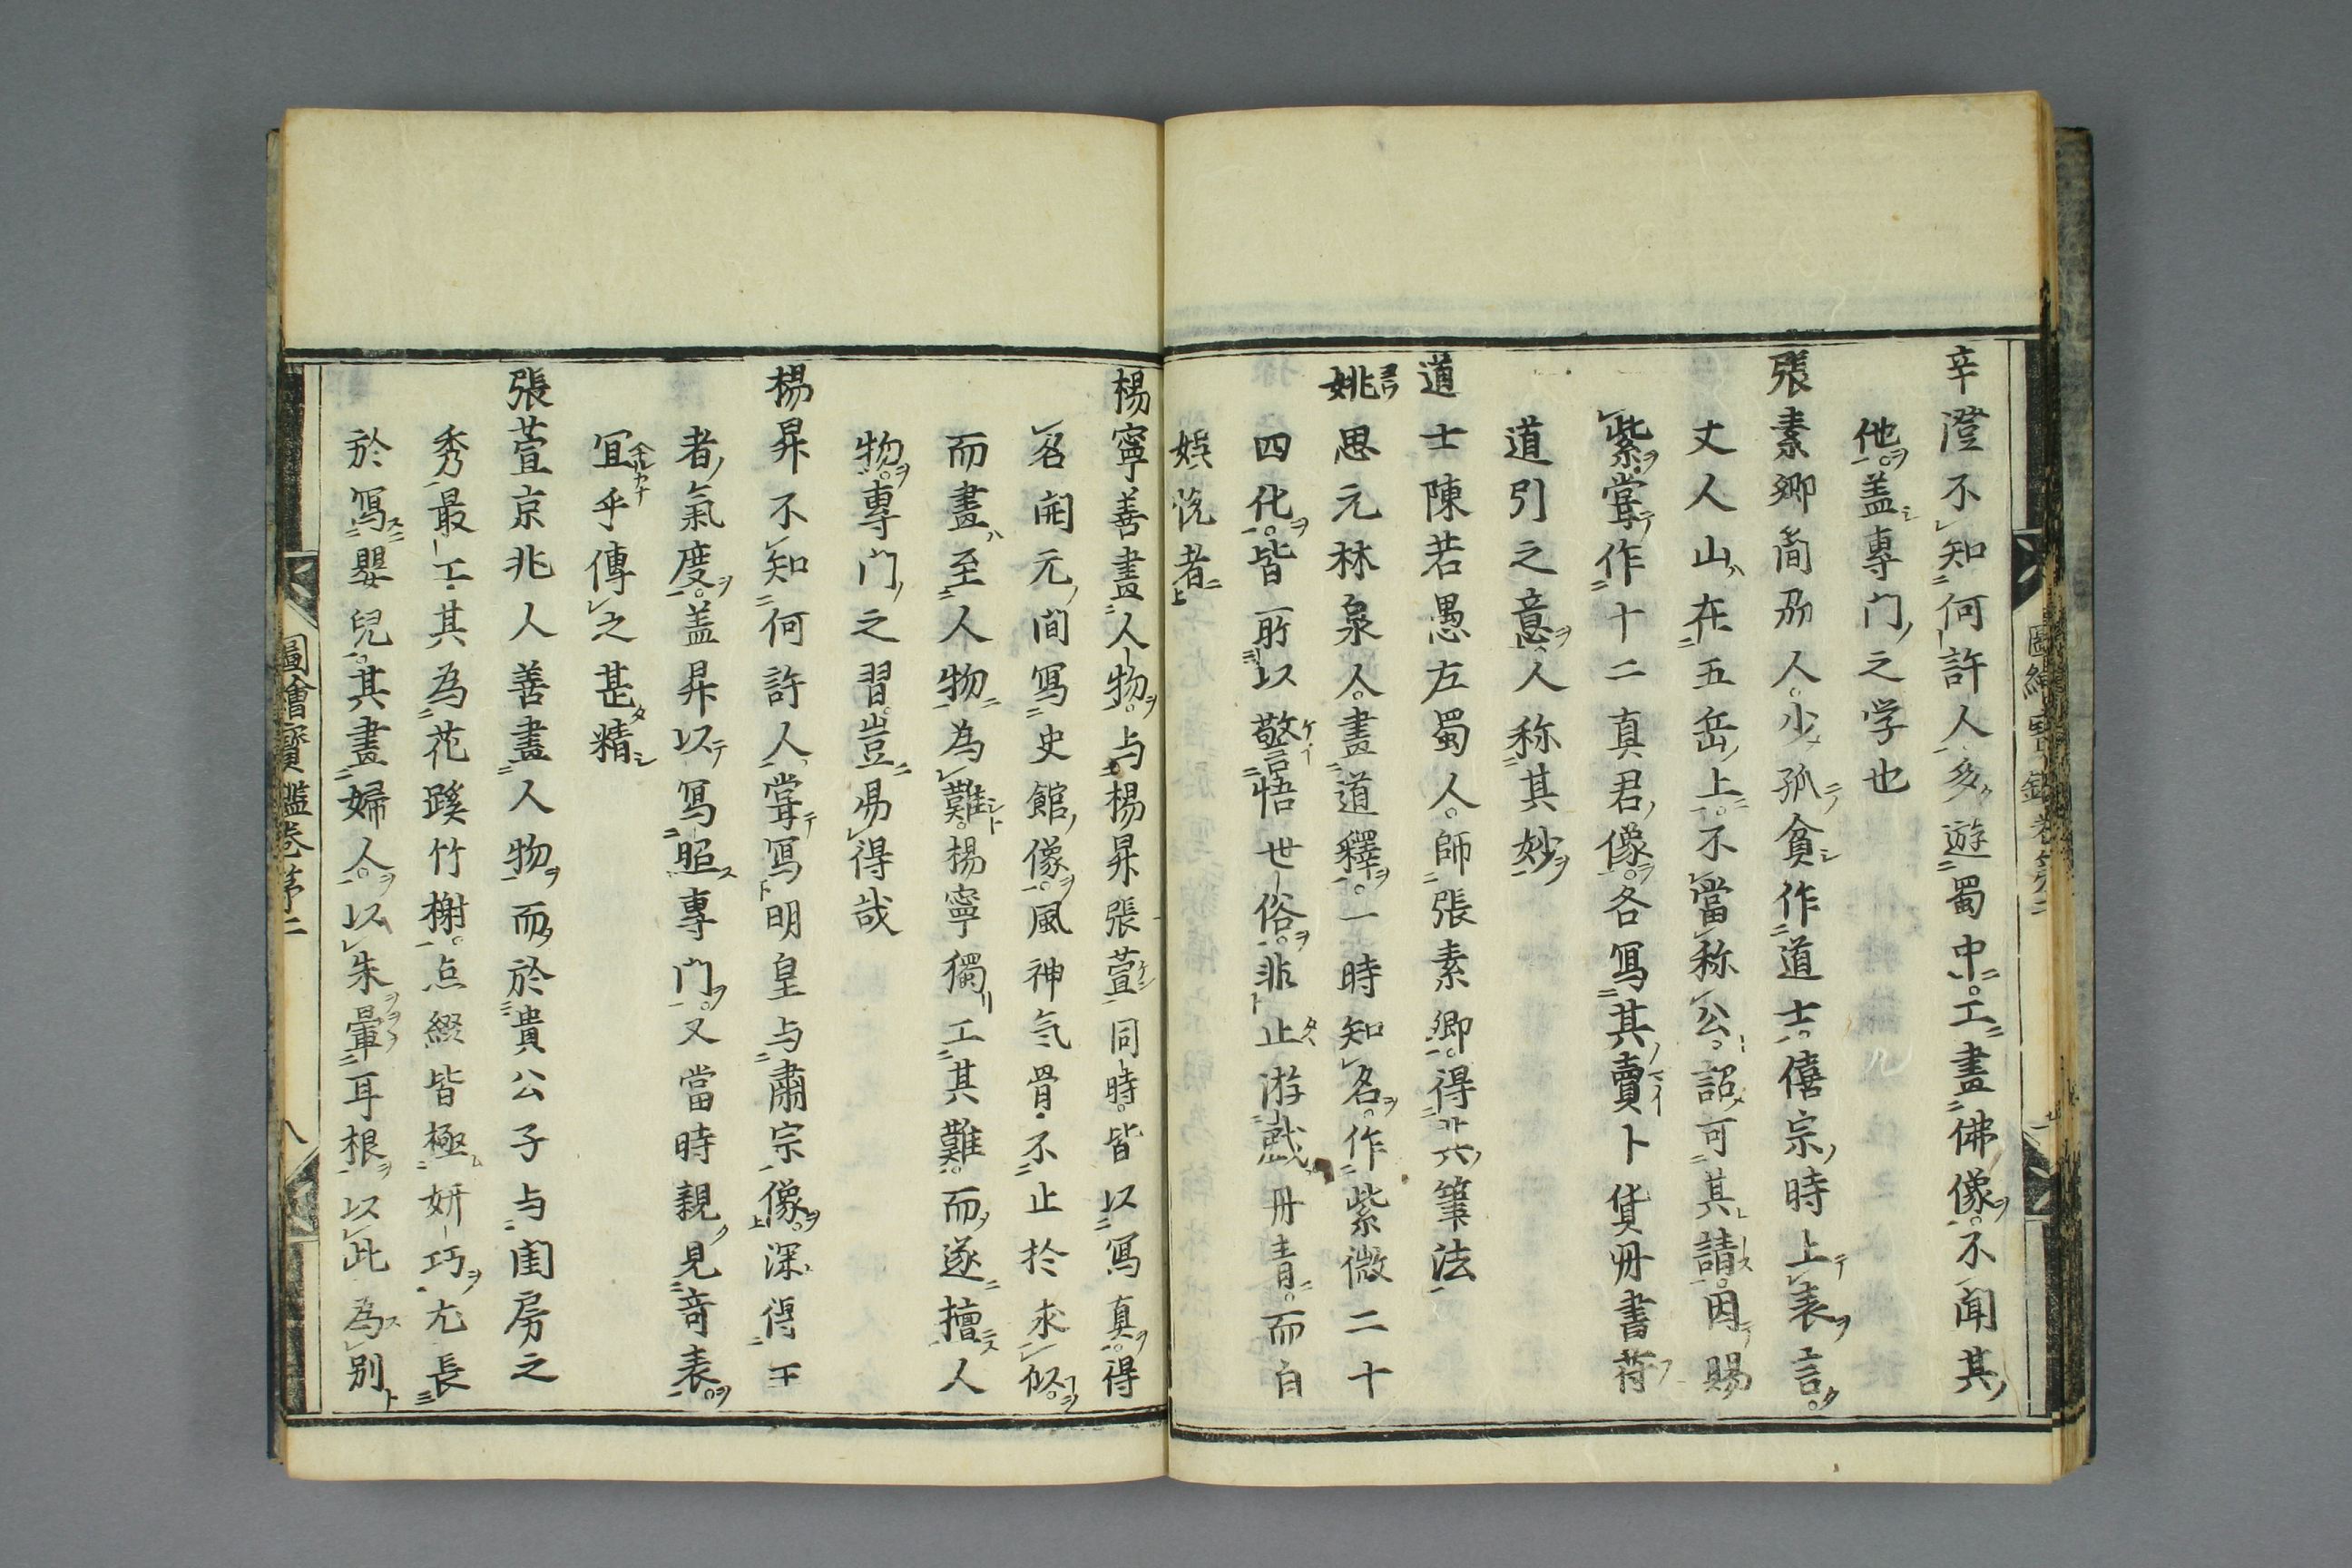 辛澄不知何許人多遊蜀中工畫佛像不聞其
他盖專门之学也
張素卿簡州人少孤貧作道士僖宗時上表言
丈人山在五岳上不當称公詔可其請因賜
紫嘗作十二真君像各寫其賣卜貨丹書符
道引之意人称其妙
道士陳若愚左蜀人師張素卿得其六筆法
姚思元林泉人畫道釋一時知名作紫微二十
四化皆所以警悟世俗非止游戲丹青而自
娯悅者
楊寧善畫人物与楊昇張萱同時皆以寫真得
名開元間寫史館像風神气骨不止於求似
而畫至人物為難楊寧獨工其難而遂擅人
物專门之習豈易得哉
楊昇不知何許人嘗寫明皇与肅宗像深得王
者氣度盖昇以寫照專門又當時親見奇表
宜乎傳之甚精
張萱京兆人善畫人物而於貴公子与閨房之
秀最工其為花蹊竹榭点綴皆極妍巧尤長
於寫嬰兒其畫婦人以朱暈耳根以此為别
圖繪寳鑑卷第二
八